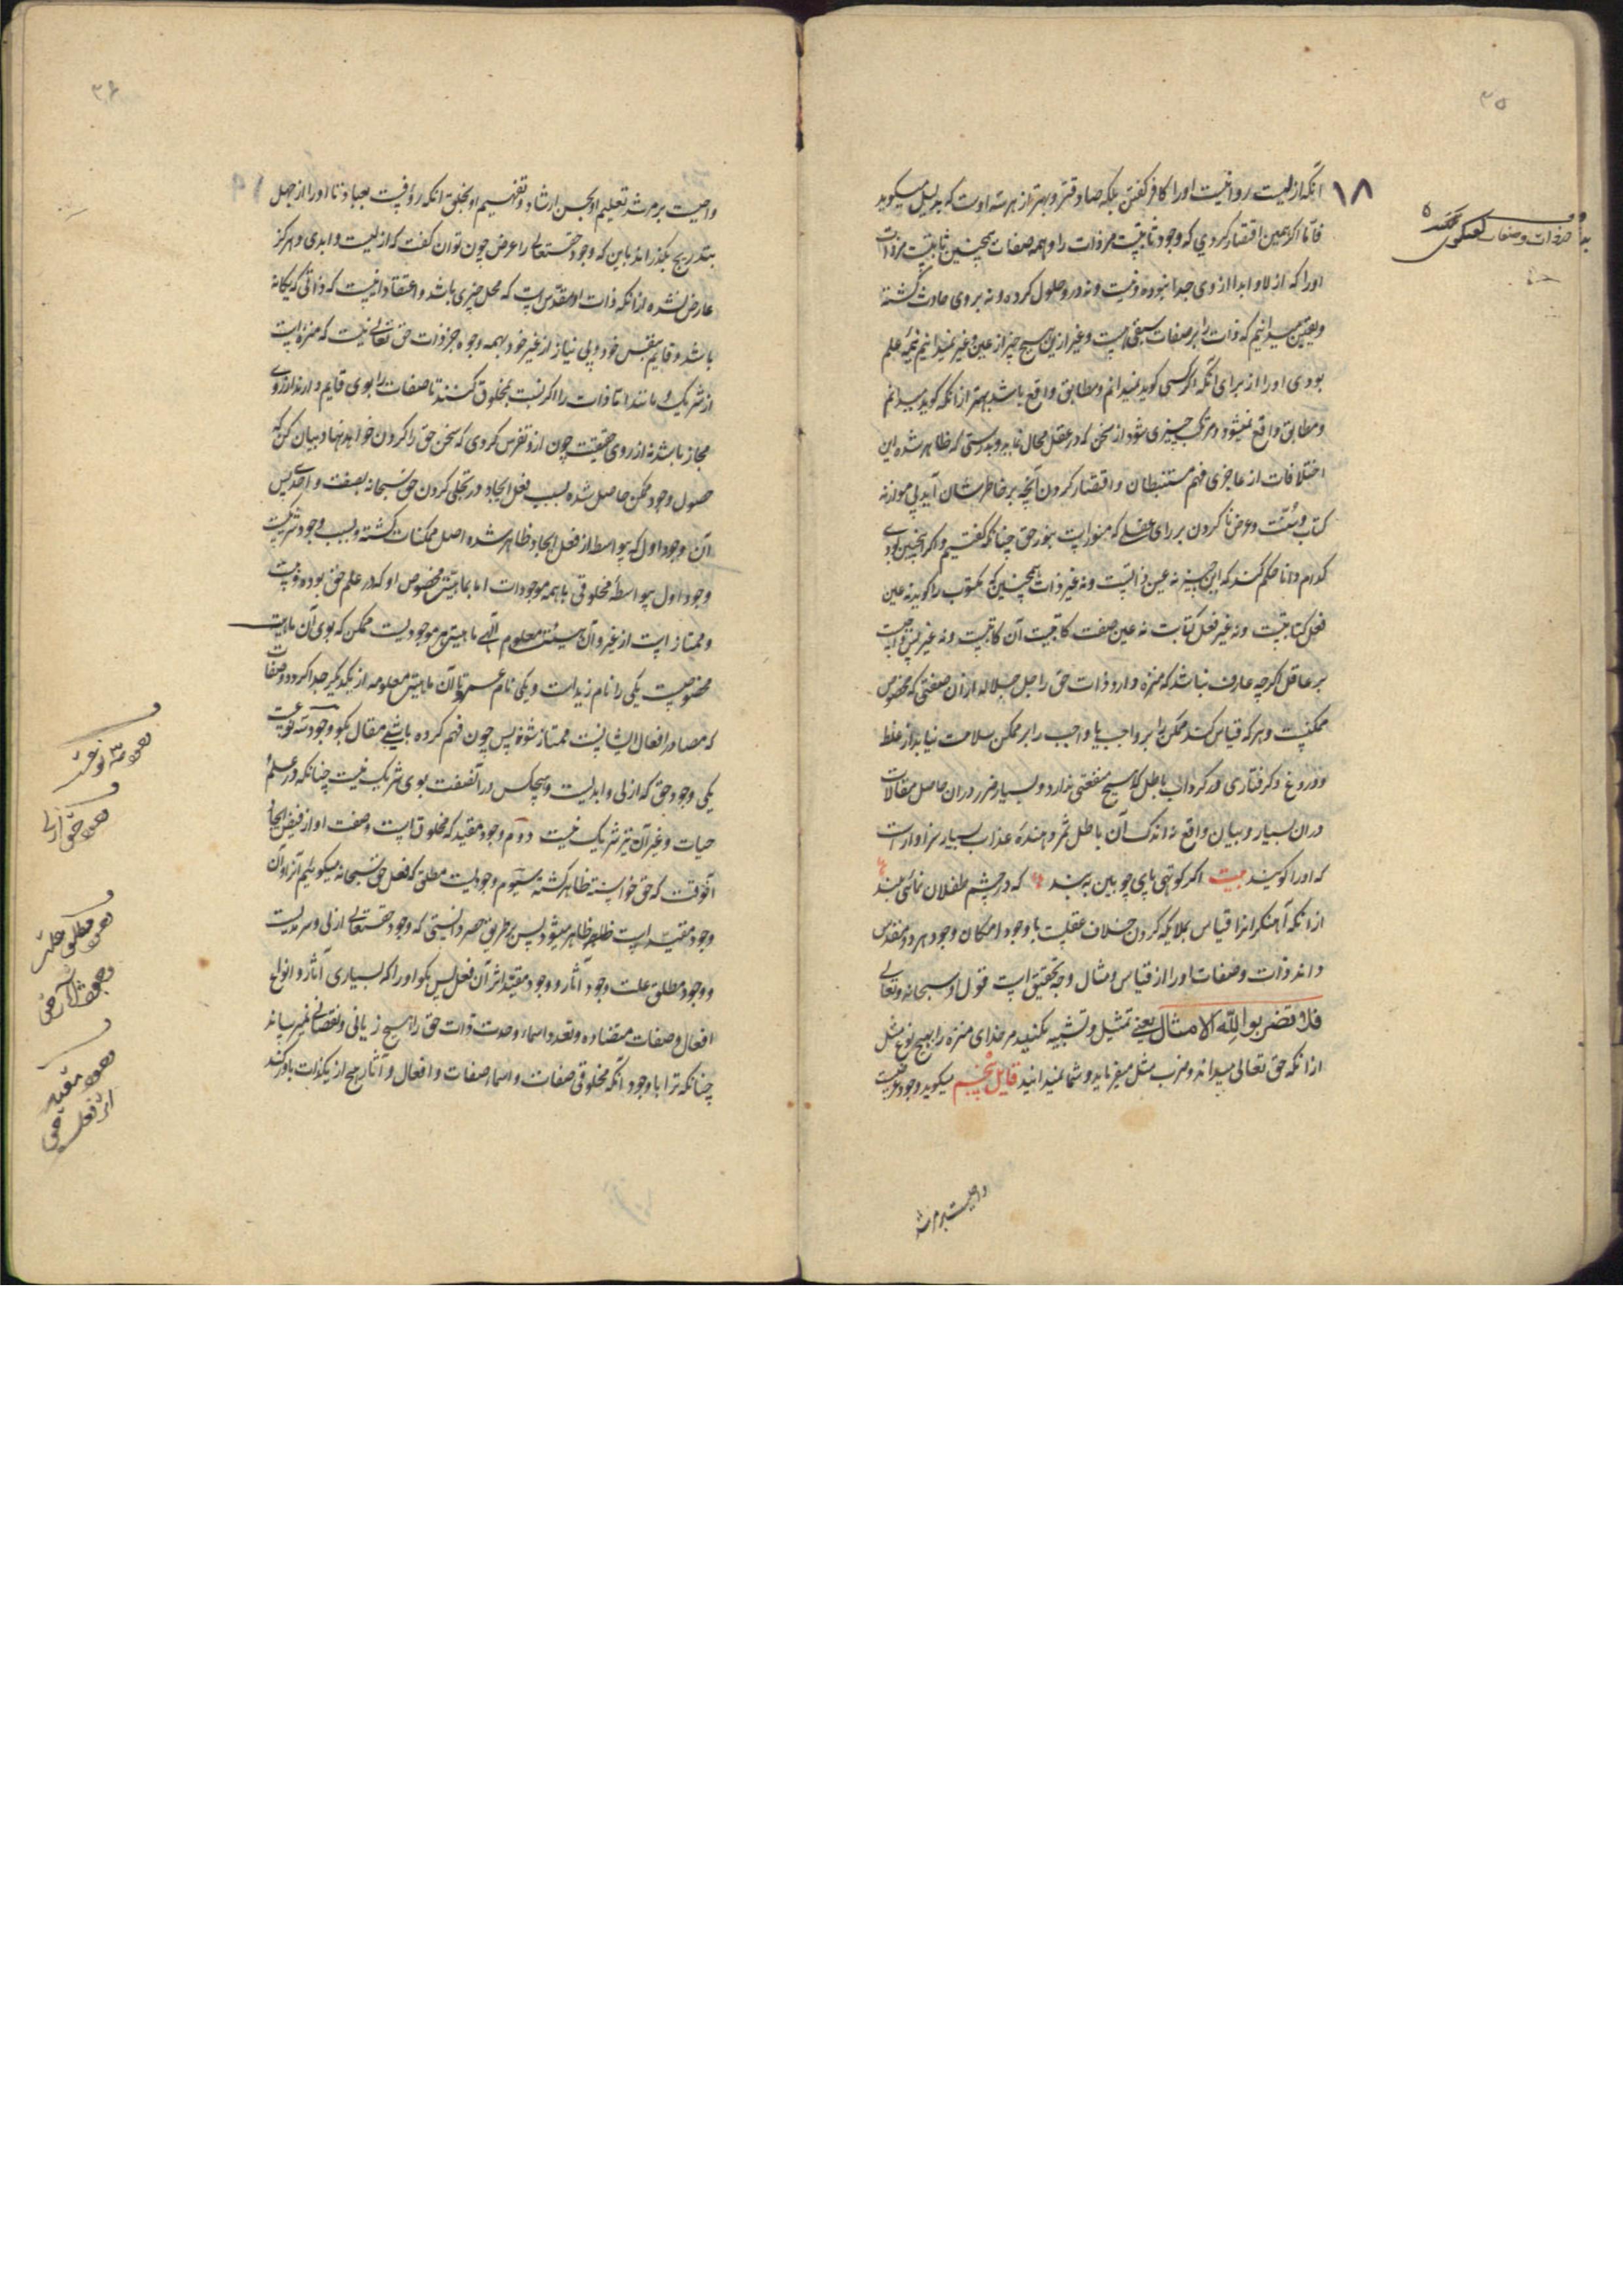 ۳۵
۱۸
انکه ازلیست روا نیست اورا کافر گفتن بلکه صادقتر و بهتر از هر سه اوست که بدلیل میگوید
فاما اگر همین اقتصار کردی که وجود ثابتست مر ذات را و همه صفات همچنین ثابتست مر ذات
اورا که ازلا و ابدا از وی جدا نبوده و نیست و نه درو حلول کرده و نه بر وی حادث گشته
و یقین میدانیم که ذات را بر صفات سبقی هست و غیر ازین هیچ چیز از عین و غیر نمیدانیم نیمه علم
بودی اورا از برای آنکه اگر کسی گوید نمیدانم و مطابق واقع باشد بهتر از آنکه گوید میدانم
و مطابق واقع نمیشود و مرتکب چیزی شود از سخن که در عقل محال نماید و بدرستی که ظاهر شده این
اختلافات از عاجزی فهم مستنبطان و اقتصار کردن آنچه بر خاطرشان آید بی موازنه
کتاب و سنّت و عرض ناکردن بر رای عقلی که منوّر است بنور حق چنانکه گفتیم و اگر اینچنین بودی
کدام دانا حکم کند که این چیز نه عین ذاتست و نه غیر ذات همچنین که مکتوب را گوید نه عین
فعل کتابتست و نه غیر فعل کتابت نه عین صفت کاتبیت آن کاتبست و نه غیر پس واجبست
بر عاقل اگرچه عارف نباشد که منزه دارد ذات حق را جل جلاله از آن صفتی که مخصوص
ممکنست و هر که قیاس کند ممکن را بر واجب یا واجب را بر ممکن سلامت نیابد از غلط
و دروغ و گرفتاری در گرداب باطل که هیچ منفعتی ندارد و بسیار ضرر در آن حاصل مقالات
در آن بسیار و بیان واقع نه اندک آن باطل ثمر دهنده عذاب بسیار سزاوار است
که اورا گویند بیت اگر کوتهی پای چوبین مبند که در چشم طفلان نمائی بلند
از آنکه آهنگر انرا قیاس بملایکه کردن خلاف عقلست با وجود امکان وجود هر دو و مقدس
داند ذات و صفات اورا از قیاس و مثال وجه تحقیق است قول او سبحانه و تعالی
فلا تضربوا لله الامثال یعنی تمثیل و تشبیه مکنید مر خدای منزه را بهیچ نوع مثل
از انکه حق تعالی میداند و ضرب مثل میفرماید و شما نمیدانید قایل پنجم میگوید وجود عرضیت
واجبست بر مرشد
۳۶
واجبست بر مرشد تعلیم او بحسن ارشاد و تفهیم او بخلق آنکه رؤفیست بعباد تا اورا از جهل
بتدریج بگذراند باین که وجود حقتعالی را عرض چون توان گفت که ازلیست و ابدی و هرگز
عارض نشده از آنکه ذات او مقدّس است که محل چیزی باشد و اعتقاد ما نیست که ذاتی که یگانه
باشد و قایم بنفس خود و بی نیاز از غیر خود بهمه وجوه جز ذات حق تعالی نیست که منزه است
از شریک و مانند اما ذات را اگر نسبت بمخلوق کنند تا صفات را بوی قایم دارند از روی
مجاز باشد نه از روی حقیقت چون ازو تفرس کردی که سخن حق را گردن خواهد نهاد بیان کن که
حصول وجود ممکن حاصل شده بسبب فعل ایجاد در تجلی کردن حق سبحانه بصفت واحدی پس
آن وجود اول که بیواسطه از فعل ایجاد ظاهر شده اصل ممکنات گشته و بسبب وجود شریکست
وجود اول بیواسطهٔ مخلوقی با همه موجودات اما بماهیتش مخصوص او که در علم حق بوده و نیست
و ممتاز است از غیر و آن هیئت معلوم آلهی ماهیت هر موجودیست ممکن که بوی آن ماهیت
مخصوصیست یکی را نام زید است و یکی نام عمرو تا آن ماهیتش معلومه از یکدیگر جدا گردد و صفات
که مصادر افعال ایشانست ممتاز شود پس چون فهم کرده باشی مقال بگو وجود سه نوعست
یکی وجود حق که ازلی و ابدیست و هیچکس در آنصفت بوی شریک نیست چنانکه در علم
حیات و غیر آن نیز شریک نیست دوم وجود مقید که مخلوق است و صفت او از فیض ایجاد
آنوقت که حق خواسته ظاهر گشته سیوم وجودیست مطلق که فعل حق سبحانه میگوئیم آنرا و آن
وجود مقید است ظاهر ظاهر میشود پس بر طریق حصر دانستی که وجود حقتعالی ازلی و سرمدیست
و وجود مطلق علت وجود آثار و وجود مقید اثر آن فعل پس بگو اورا که بسیاری آثار و انواع
افعال و صفات متضاده و تعدد اسماء وحدت ذات حق را هیچ زیانی و نقصانی نمیرساند
چنانکه ترا با وجود آنکه مخلوقی صفات و اسماء صفات و افعال و آثار هیچ از یک ذات باور کند
وجود سه نوعست
وجود حق ازلی
وجود مطلق علت
وجود آثار
وجود مقید
اثر فعل حق